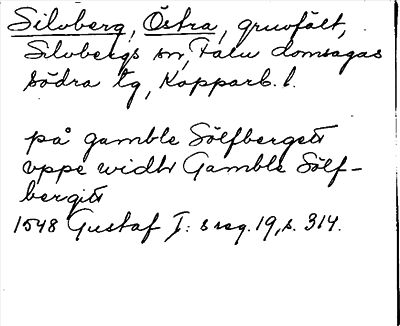 Silvberg, Östra, gruvfält,
Silvbergs sn, Falu domsagas
södra tg, Kopparb. l.
på gamble Sölfbergett
vppe widtr Gamble Sölf-
bergitt
1548 Gustaf I: s reg. 19, s. 314.